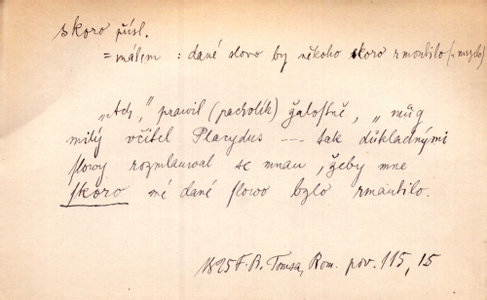 skoro přísl.
= málem : dané slovo by někoho skoro rmoutilo (= mrzelo)
„Ach,“ prawil (pacholík) žalostně, „můg
milý včitel Placydus --- tak důkladnými
slowy rozmlauwal se mnau, žeby mne
skoro mé dané slowo bylo rmautilo.
1825 F. B. Tomsa, Rom. pov. 115, 15